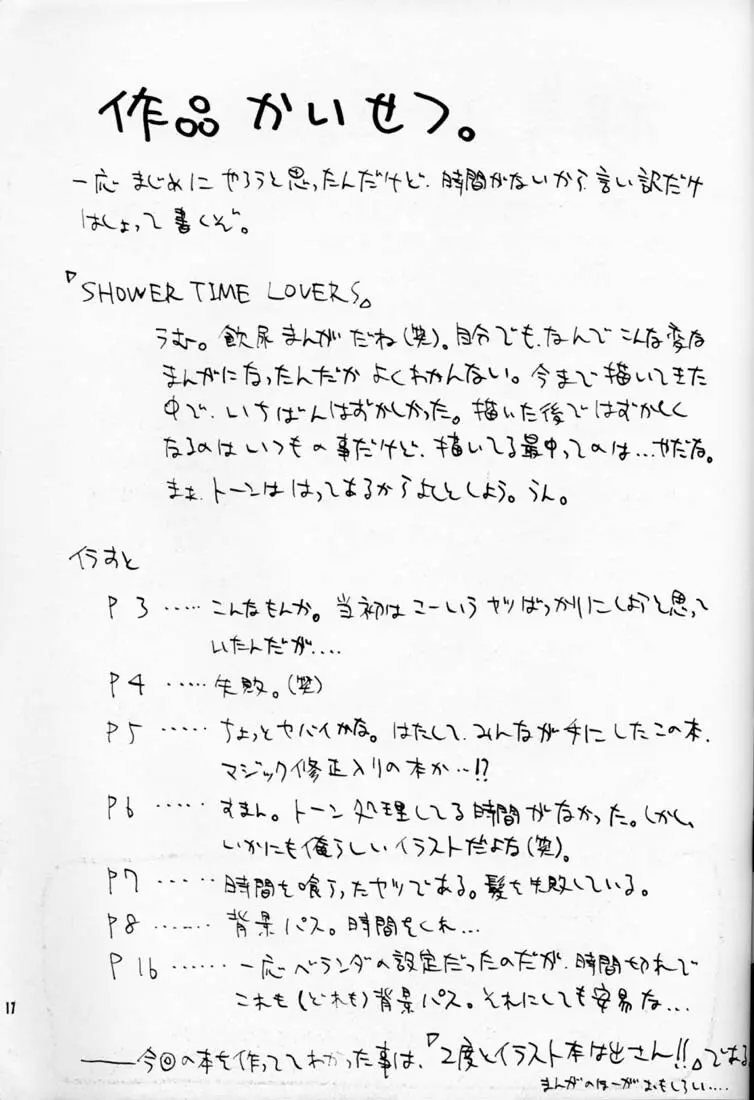 作品かいせつ。
一応まじめにやろうと思ったんだけど、時間がないから言い訳だけ
はしょって書くぞ。
『SHOWER TIME LOVERS』
うむ。飲尿まんがだね(笑)。自分でも、なんでこんな変な
まんがになったんだかよくわかんない。今まで描いてきた
中で、いちばんはずかしかった。描いた後ではずかしく
なるのはいつもの事だけど、描いてる最中ってのは…やだな。
まぁ、トーンははってあるからよしとしよう。うん。
イラすと
P3……こんなもんか。当初はこーいうヤツばっかりにしようと思って
いたんだが‥‥
P4……失敗。(笑)
P5……ちょっとヤバイかな。はたして、みんなが手にしたこの本、
マジック修正入りの本か…!?
P6……すまん。トーン処理してる時間がなかった。しかし、
いかにも俺らしいイラストだよな(笑)。
P7……時間を喰ったヤツである。髪を失敗している。
P8……背景パス。時間をくれ…
P16……一応ベランダの設定だったのだが、時間切れで
これも(どれも)背景パス。それにしても安易な…
――今回の本を作っててわかった事は、『2度とイラスト本は出さん!!』である
まんがのほーがおもしろい‥‥
17